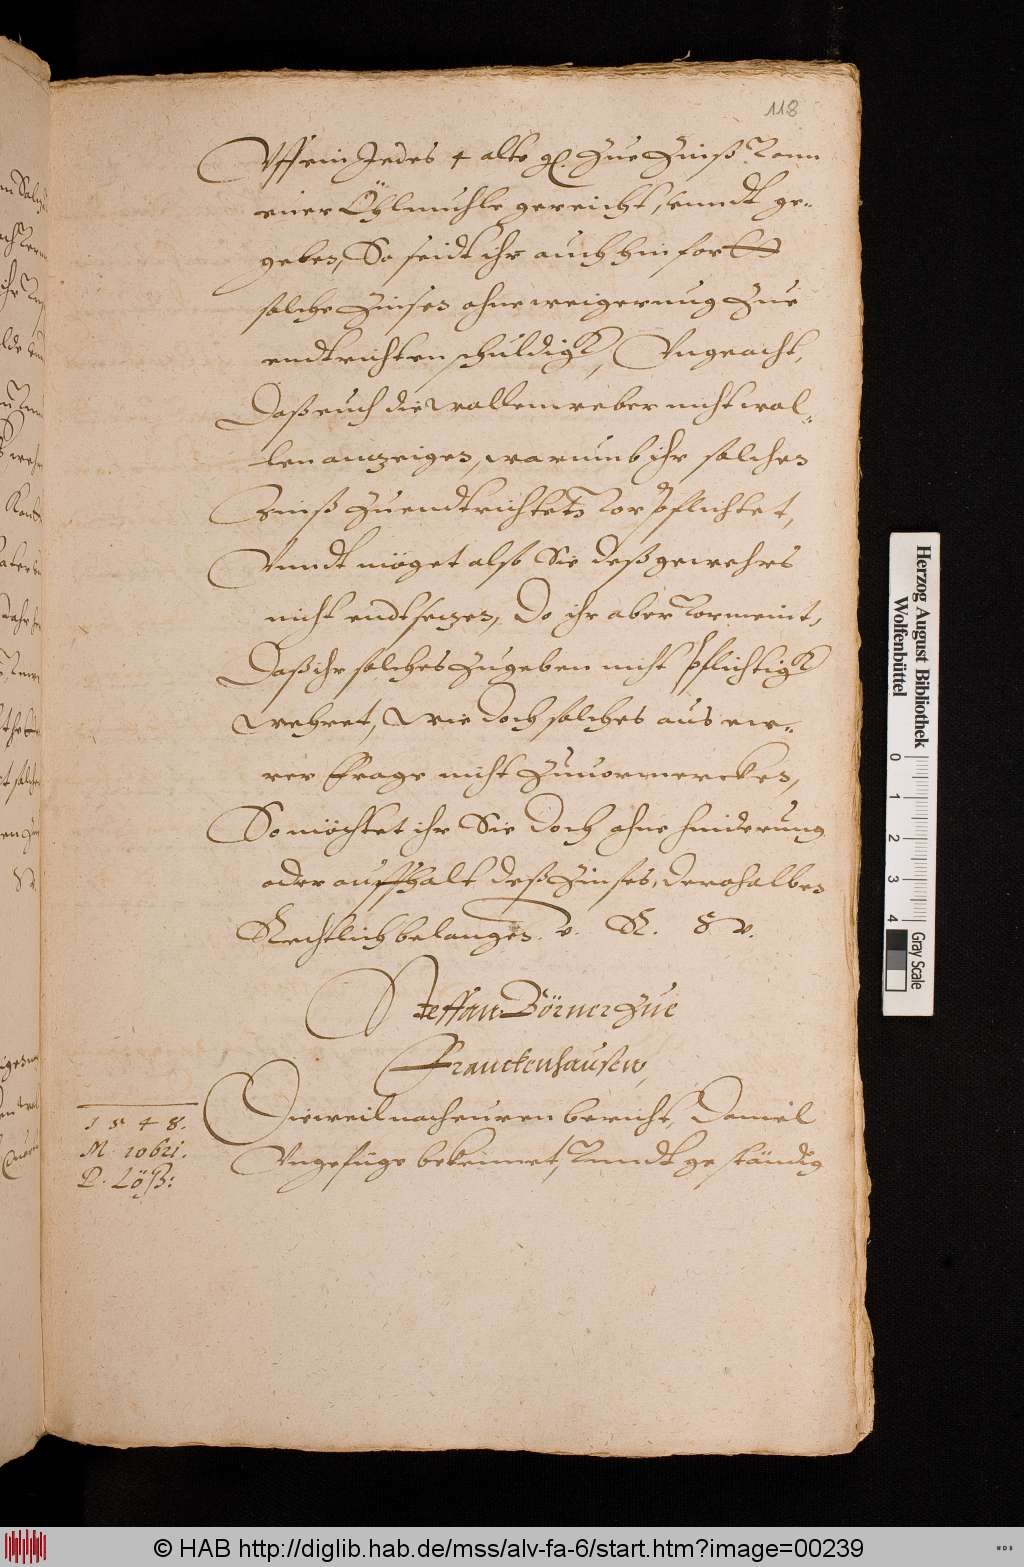 118
Vff ein Jedes 4 alte gl. Zue Zinß von
einer Öhlmuhle gereicht, unndt ge-
geben, So seidt ihr auch hinfortt
solche Zinsen ohne weigerung Zue
endtrichten schuldigk, Vngeacht,
Daß euch die wollenweber nicht wol-
len anzeigen, warumb ihr solchen
Zinß Zuendtrichten vorpflichtet,
Vnndt möget also Sie deß gewehrs
nicht endtsetzen, Do ihr aber vormeint,
Daß ihr solches Zugeben nicht pflichtigk
wehret, Wie doch solches aus ew-
rer Frage nicht Zuuormercken,
So möchtet ihr Sie doch ohne hinderung
oder auffhalt deß Zinses, derohalben
Rechtlich belangen. v. R. w.
Steffan Dörner Zue
Franckenhausen,
1548.
M. 10bri.
P. Löß:
Dieweil nach euren bericht, Daniel
Vngefüge bekennet, vnndt geständig
Herzog August Bibliothek
Wolfenbüttel
0 1 2 3 4
Gray Scale
© HAB http://diglib.hab.de/mss/alv-fa-6/start.htm?image=00239